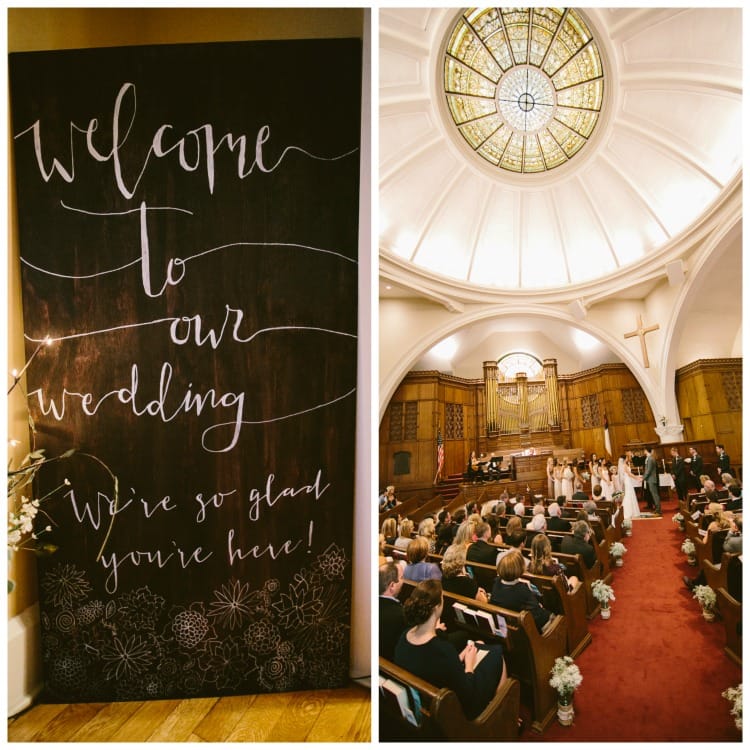 welcome
to
our
wedding
We're so glad
you're here!